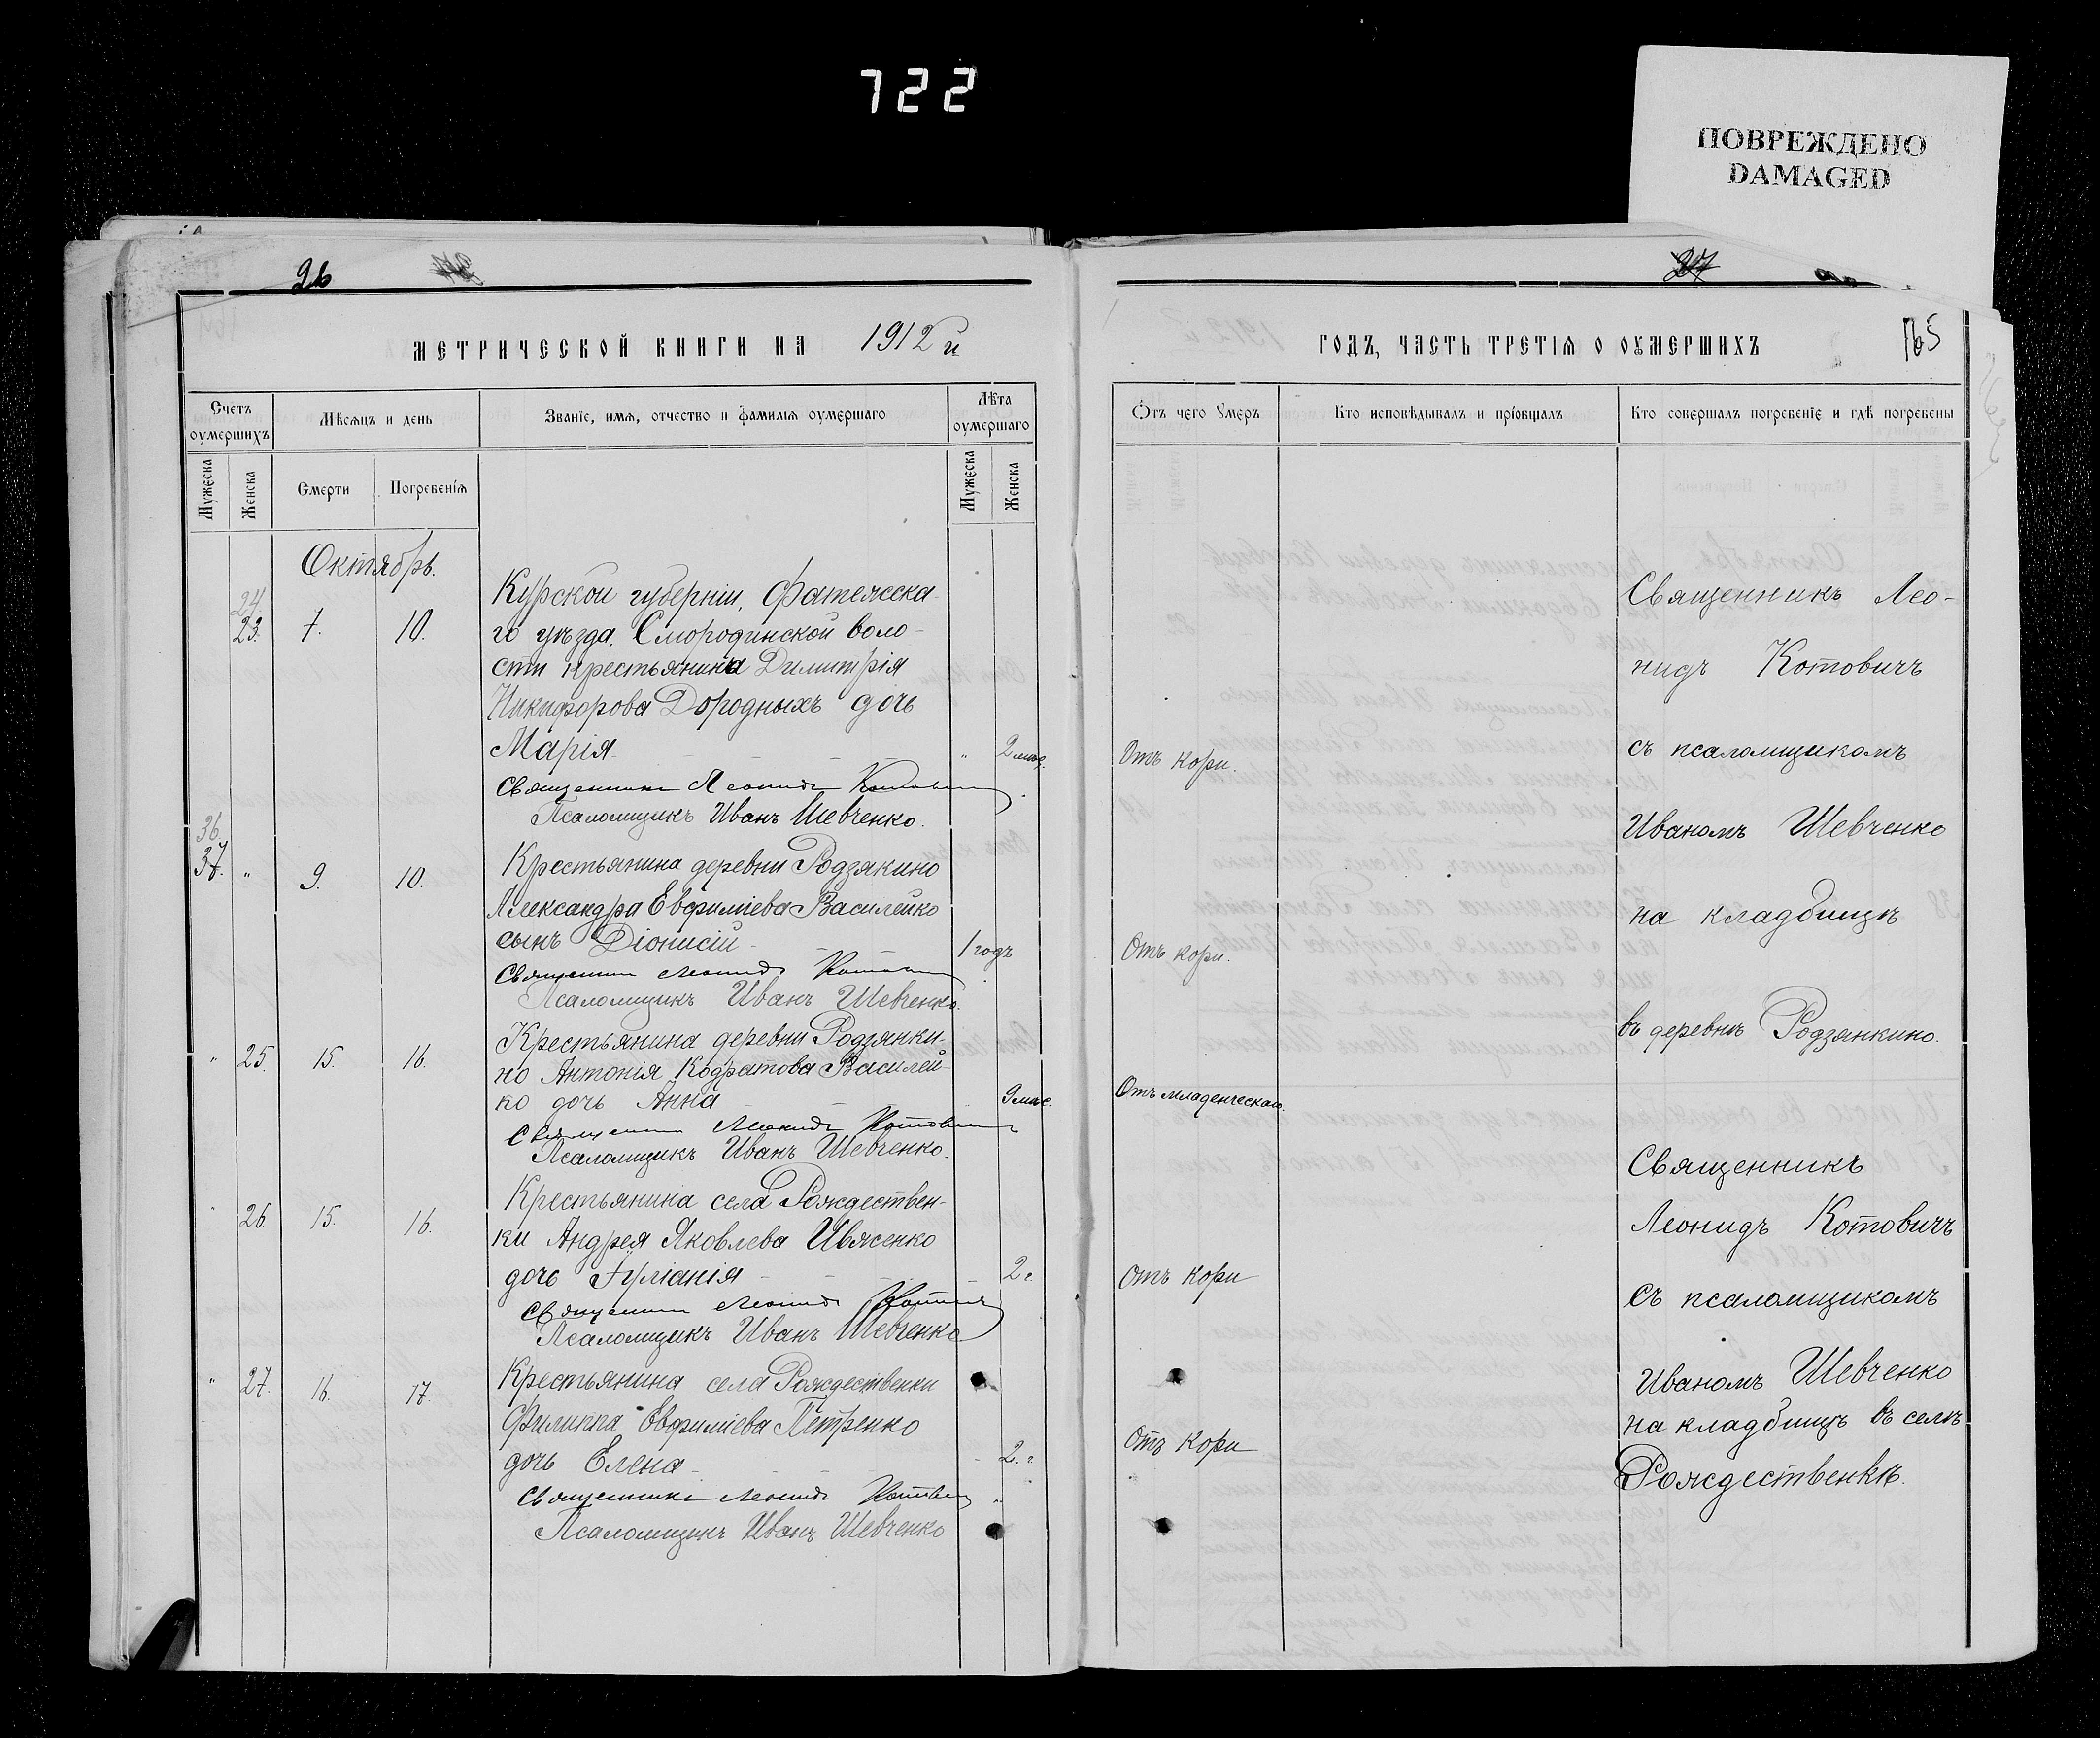 722
ПОВРЕЖДЕНО
DAMAGED
26
27
МЕТРИЧЕСКОЙ КНИГИ НА 1912 й
ГОДЪ, ЧАСТЬ ТРЕТІЯ О ОУМЕРШИХЪ
165
Счетъ оумершихъ
Мѣсяцъ и день
Званіе, имя, отчество и фамилія оумершаго
Лѣта оумершаго
Мужеска
Женска
Смерти
Погребенія
Мужеска
Женска
Отъ чего Умеръ
Кто исповѣдывалъ и пріобщалъ
Кто совершалъ погребеніе и гдѣ погребены
Октябрь.
24.
23. 7. 10.
Курской губерніи, Фатежска-
го уѣзда, Смородинской воло-
сти крестьянина Димитрія
Никифорова Дородныхъ дочь
Марія " 2 мѣс.
Отъ кори.
Священникъ Леонидъ Котовичъ
Псаломщикъ Иванъ Шевченко.
36.
37. " 9. 10.
Крестьянина деревни Родзякино
Александра Евфиміева Василейко
сынъ Діонисій 1 годъ
Отъ кори.
Священникъ Леонидъ Котовичъ
Псаломщикъ Иванъ Шевченко.
" 25. 15. 16.
Крестьянина деревни Родзянки-
но Антонія Кодратова Василей-
ко дочь Анна 9 мѣс.
Отъ младенческаго.
Священникъ Леонидъ Котовичъ
Псаломщикъ Иванъ Шевченко.
" 26 15. 16.
Крестьянина села Рождествен-
ки Андрея Яковлева Ивженко
дочь Іуліанія 2 г.
Отъ кори
Священникъ Леонидъ Котовичъ
Псаломщикъ Иванъ Шевченко
" 27. 16. 17.
Крестьянина села Рождественки
Филиппа Евфиміева Петренко
дочь Елена 2. г.
Отъ кори
Священникъ Леонидъ Котовичъ
Псаломщикъ Иванъ Шевченко
Священникъ Лео-
нидъ Котовичъ
съ псаломщикомъ
Иваномъ Шевченко
на кладбищѣ
въ деревнѣ Родзянкино.
Священникъ
Леонидъ Котовичъ
съ псаломщикомъ
Иваномъ Шевченко
на кладбищѣ въ селѣ
Рождественкѣ.